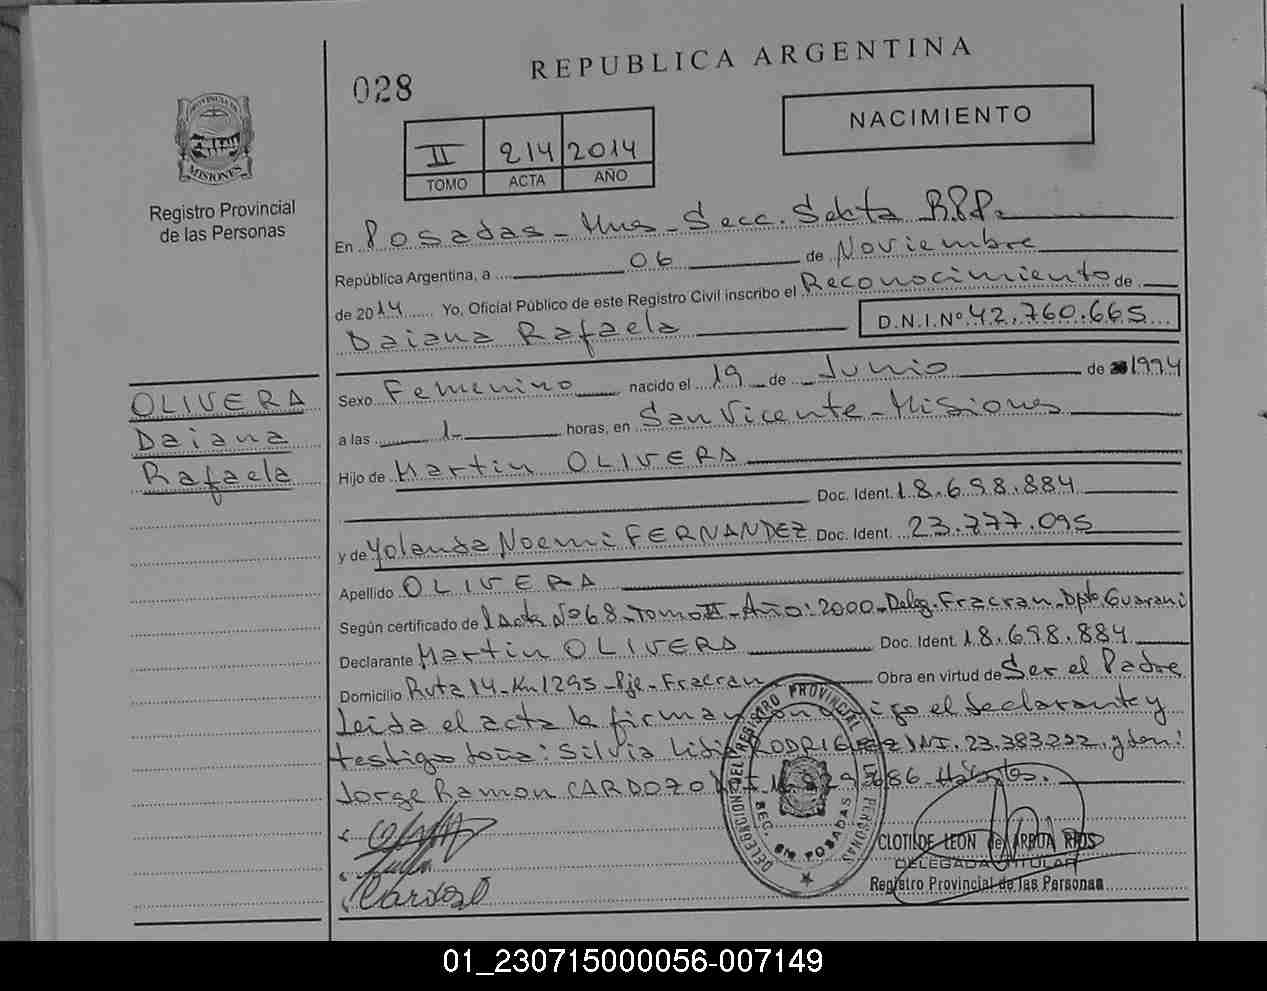 REPUBLICA ARGENTINA
028
NACIMIENTO
II 214 2014
TOMO ACTA AÑO
PROVINCIA DE MISIONES
Registro Provincial
de las Personas
En Posadas - Mnes - Secc. Sexta R.P.P.
República Argentina, a 06 de Noviembre
de 2014 Yo, Oficial Público de este Registro Civil inscribo el Reconocimiento de
Daiana Rafaela D.N.I.Nº 42.760.665
OLIVERA
Daiana
Rafaela
Sexo Femenino nacido el 19 de Junio de 1994
a las 1 horas, en San Vicente - Misiones
Hijo de Martin OLIVERA
Doc. Ident. 18.698.884
y de Yolanda Noemi FERNANDEZ Doc. Ident. 23.777.095
Apellido OLIVERA
Según certificado de Acta Nº 68 - Tomo II - Año: 2000 - Deleg. Fracran - Dpto. Guarani
Declarante Martin OLIVERA Doc. Ident. 18.698.884
Domicilio Ruta 14 - Km 1295 - Pje - Fracran Obra en virtud de Ser el Padre
Leida el acta la firman conmigo el declarante y
testigos Silvia Lidia RODRIGUEZ DNI. 23.383.222 y
Jorge Ramon CARDOZO 686 - Hábiles.
DELEGACION DEL REGISTRO PROVINCIAL DE LAS PERSONAS
SEC. 6ta POSADAS
Cardozo
CLOTILDE LEON de ARRUA RIOS
DELEGADA TITULAR
Registro Provincial de las Personas
01_230715000056-007149